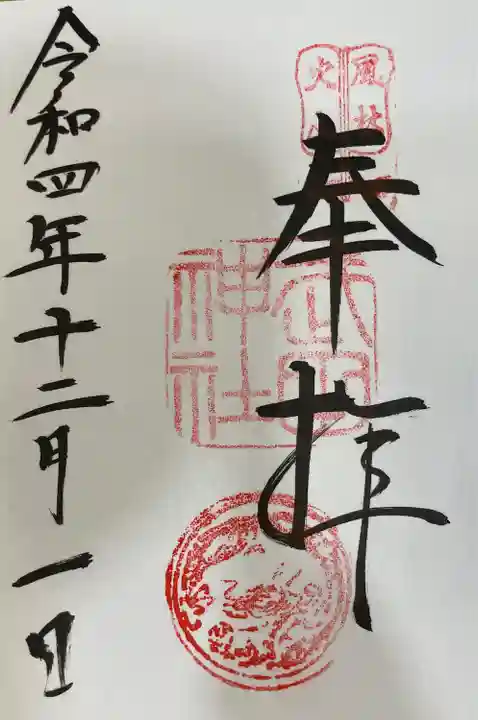 奉拝
風林
火山
武田
神社
令和四年十二月一日